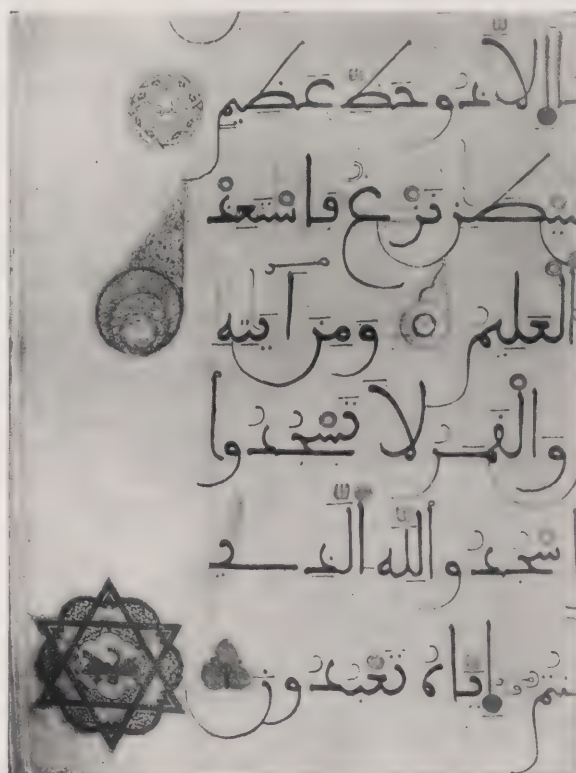 إلا ذو حظ عظيم
نزغ فاستعذ
العليم ومن آيته
والقمر لا تسجدوا
اسجدوا لله الذي
إياه تعبدون